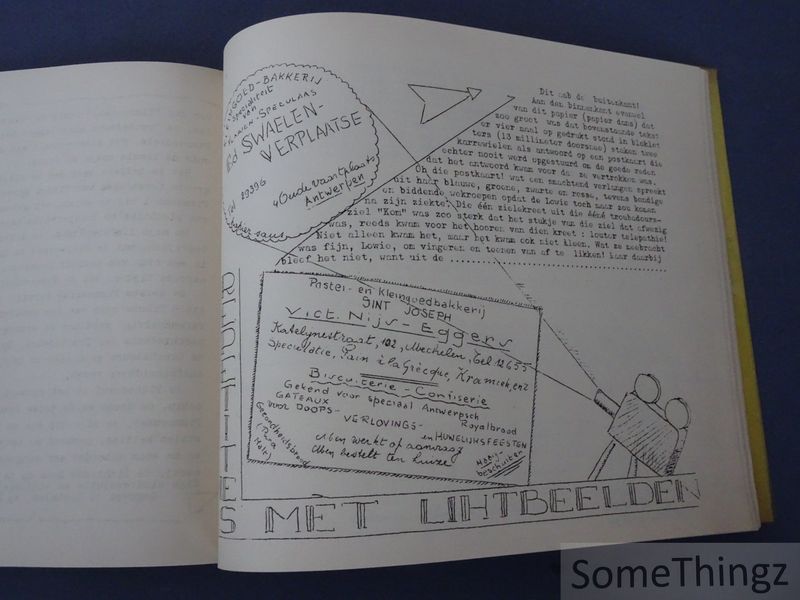 GOED-BAKKERIJ
Specialiteit
van
SPECULAAS
SWAELEN-
VERPLAATSE
Oude vaartplaats
Antwerpen
29396
sans
Dit was de buitenkant!
Aan den binnenkant evenwel
van dit papier (papier dans) dat
zoo groot was dat bovenstaande tekst
er vier maal op gedrukt stond in blaklet
ters (13 millimeter doorsnee) staken twee
karrewielen als antwoord op een postkaart die
echter nooit werd opgestuurd om de goede reden
dat het antwoord kwam voor de ze vertrokken was.
Oh die postkaart! wat een smachtend verlangen spreekt
uit haar blauwe, groene, zwarte en rosse, tevens bondige
en biddende wekroepen opdat de Lowie toch maar zou komen
na zijn ziekte! Die één zielskreet uit die ééné troubadours-
ziel "Kom" was zoo sterk dat het stukje van die ziel dat afwezig
was, reeds kwam voor het hooren van dien kreet : louter telepathie!
Niet alleen kwam het, maar het kwam ook niet alleen. Wat ze meebracht
was fijn, Lowie, om vingeren en toonen van af te likken! Maar daarbij
bleef het niet, want uit de ..............................
Pastei- en Kleingoedbakkerij
SINT JOSEPH
Vict. Nijs-Eggers
Katelynestraat, 102, Mechelen, Tel 12655
Specialatie, Pain à la Grècque, Kramiek, enz
Biscuiterie - Confiserie
Gekend voor speciaal Antwerpsch
GATEAUX Royalbrood
voor DOOPS- VERLOVINGS- en HUWELIJKSFEESTEN
Gezondheidsbrood
(Para
Malt)
Men werkt op aanvraag
Men bestelt ten huize
beschuiten
S MET LIHTBEELDEN
SomeThingz